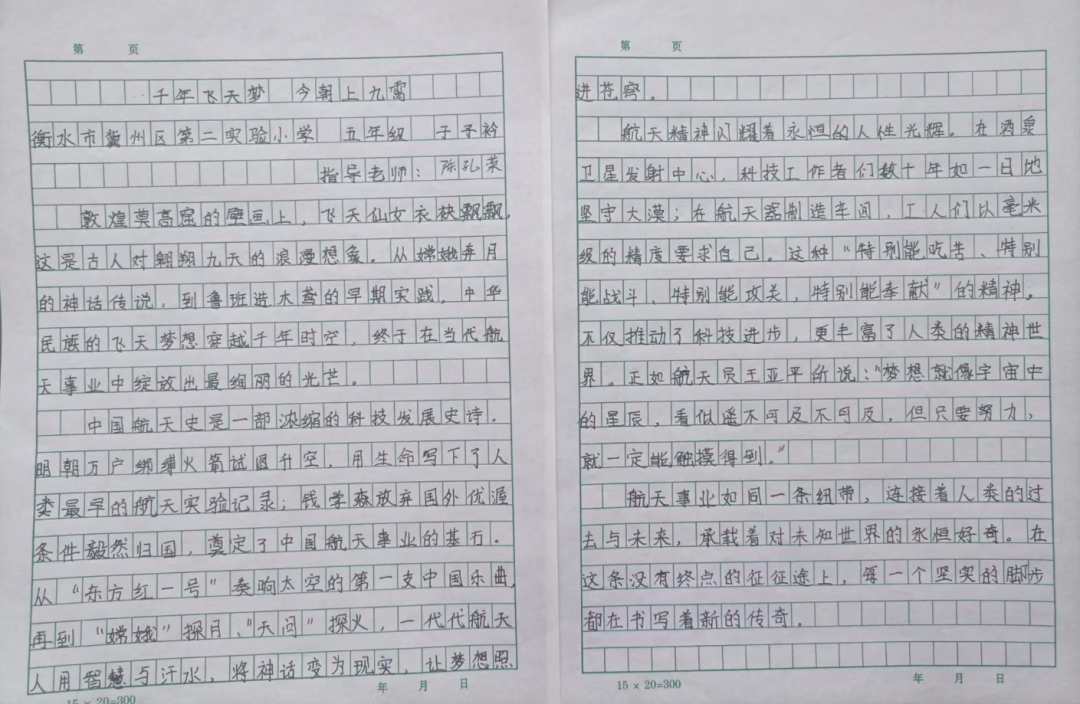 第 页
千年飞天梦 今朝上九霄
衡水市冀州区第二实验小学 五年级 子子衿
指导老师：陈孔荣
敦煌莫高窟的壁画上，飞天仙女衣袂飘飘，
这是古人对翱翔九天的浪漫想象。从嫦娥奔月
的神话传说，到鲁班造木鸢的早期实践，中华
民族的飞天梦想穿越千年时空，终于在当代航
天事业中绽放出最绚丽的光芒。
中国航天史是一部浓缩的科技发展史诗。
明朝万户绑缚火箭试图升空，用生命写下了人
类最早的航天实验记录；钱学森放弃国外优渥
条件毅然归国，奠定了中国航天事业的基石。
从“东方红一号”奏响太空的第一支中国乐曲，
再到“嫦娥”探月、“天问”探火，一代代航天
人用智慧与汗水，将神话变为现实，让梦想照
15 × 20=300
年 月 日
第 页
进苍穹。
航天精神闪耀着永恒的人性光辉。在酒泉
卫星发射中心，科技工作者们数十年如一日地
坚守大漠；在航天器制造车间，工人们以毫米
级的精度要求自己。这种“特别能吃苦、特别
能战斗、特别能攻关，特别能奉献”的精神。
不仅推动了科技进步，更丰富了人类的精神世
界。正如航天员王亚平所说：“梦想就像宇宙中
的星辰，看似遥不可及不可及，但只要努力，
就一定能触摸得到。”
航天事业如同一条纽带，连接着人类的过
去与未来，承载着对未知世界的永恒好奇。在
这条没有终点的征征途上，每一个坚实的脚步
都在书写着新的传奇。
15 × 20=300
年 月 日